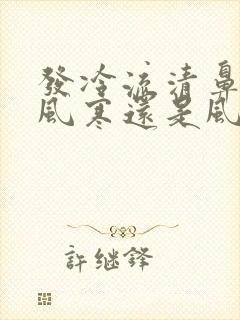 發冷流清鼻
風寒還是風
許继鋒